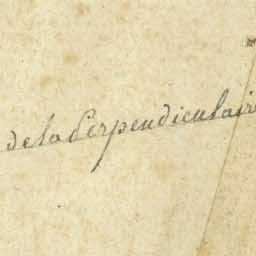 de la Perpendiculair